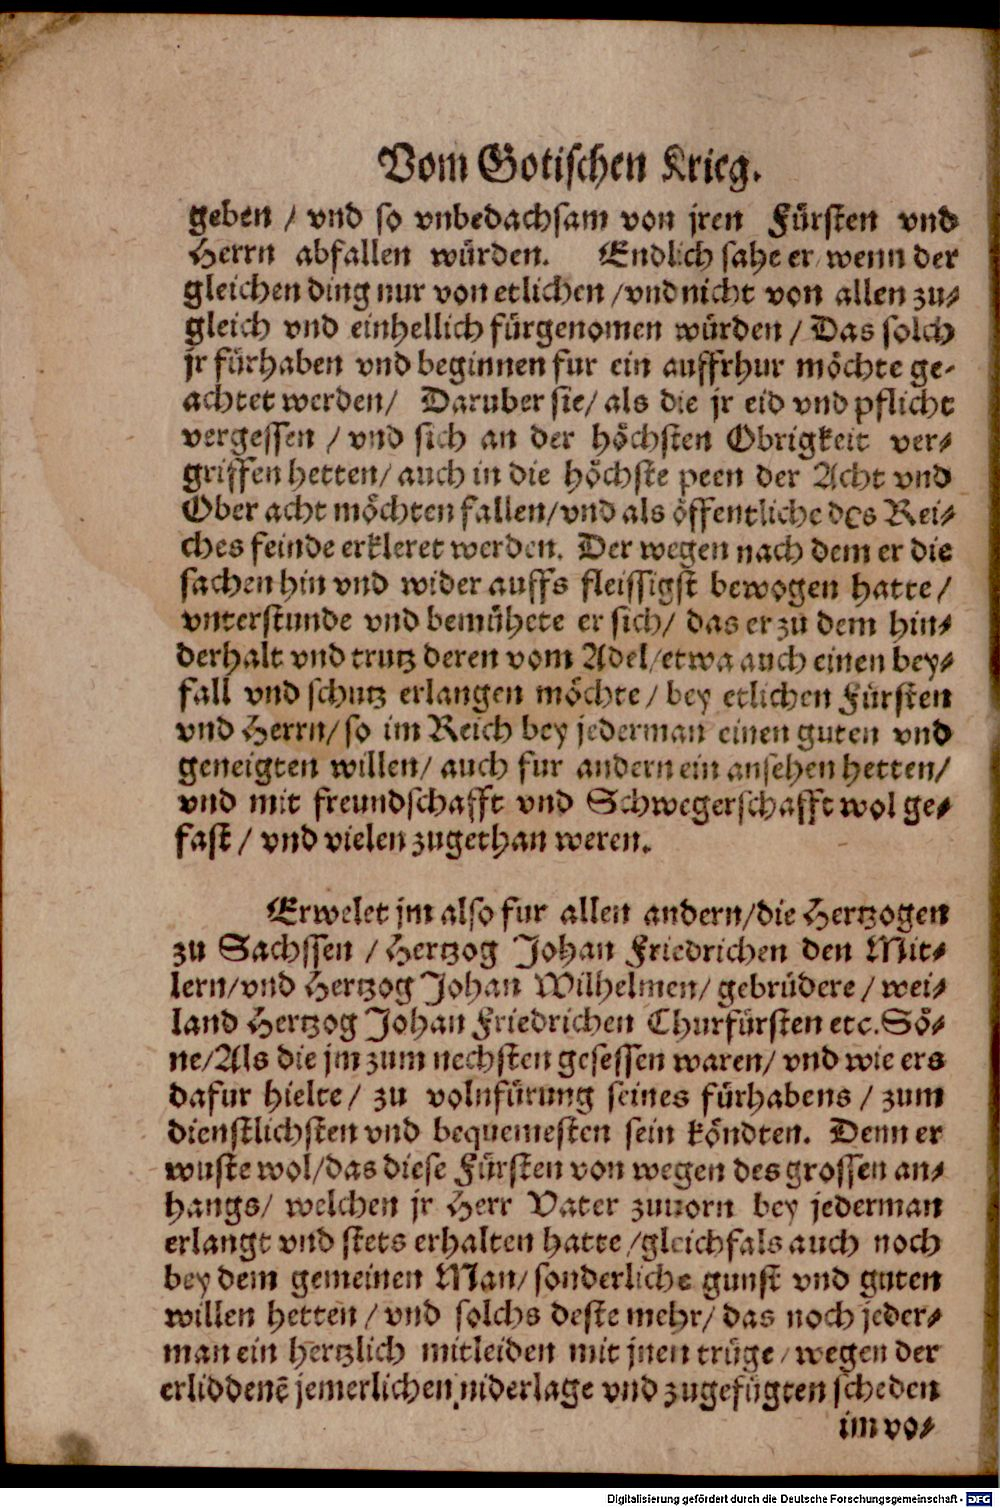 Vom Gotischen Krieg.
geben / vnd so vnbedachsam von jren Fürsten vnd
Herrn abfallen würden. Endlich sahe er / wenn der
gleichen ding nur von etlichen / vnd nicht von allen zu-
gleich vnd einhellich fürgenomen würden / Das solch
jr fürhaben vnd beginnen fur ein auffrhur möchte ge-
achtet werden / Daruber sie / als die jr eid vnd pflicht
vergessen / vnd sich an der höchsten Obrigkeit ver-
griffen hetten / auch in die höchste peen der Acht vnd
Ober acht möchten fallen / vnd als öffentliche des Rei-
ches feinde erkleret werden. Der wegen nach dem er die
sachen hin vnd wider auffs fleissigst bewogen hatte /
vnterstunde vnd bemühete er sich / das er zu dem hin-
derhalt vnd trutz deren vom Adel / etwa auch einen bey-
fall vnd schutz erlangen möchte / bey etlichen Fürsten
vnd Herrn / so im Reich bey jederman einen guten vnd
geneigten willen / auch fur andern ein ansehen hetten /
vnd mit freundschafft vnd Schwegerschafft wol ge-
fast / vnd vielen zugethan weren.
Erwelet jm also fur allen andern / die Hertzogen
zu Sachssen / Hertzog Johan Friedrichen den Mit-
lern / vnd Hertzog Johan Wilhelmen / gebrüdere / wei-
land Hertzog Johan Friedrichen Churfürsten etc. Sö-
ne / Als die jm zum nechsten gesessen waren / vnd wie ers
dafur hielte / zu volnfürung seines fürhabens / zum
dienstlichsten vnd bequemesten sein köndten. Denn er
wuste wol / das diese Fürsten von wegen des grossen an-
hangs / welchen jr Herr Vater zuuorn bey jederman
erlangt vnd stets erhalten hatte / gleichfals auch noch
bey dem gemeinen Man / sonderliche gunst vnd guten
willen hetten / vnd solchs deste mehr / das noch jeder-
man ein hertzlich mitleiden mit jnen trüge / wegen der
erliddenē jemerlichen niderlage vnd zugefügten scheden
im vo-
Digitalisierung gefördert durch die Deutsche Forschungsgemeinschaft - DFG